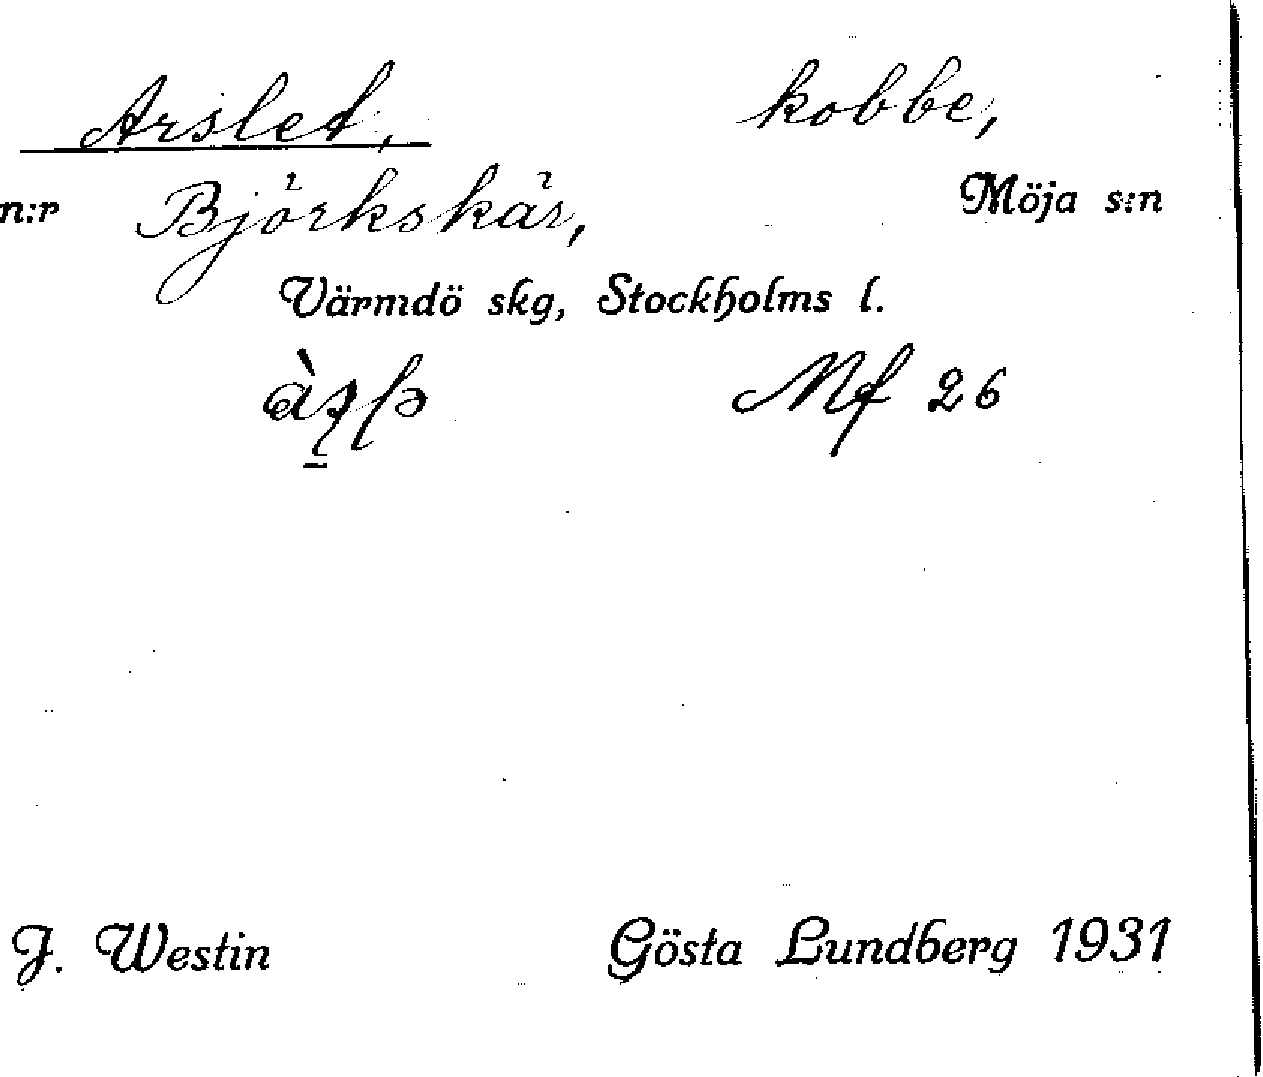 Arslet, kobbe,
n:r Björkskär, Möja s:n
Värmdö skg, Stockholms l.
Mf 26
J. Westin Gösta Lundberg 1931